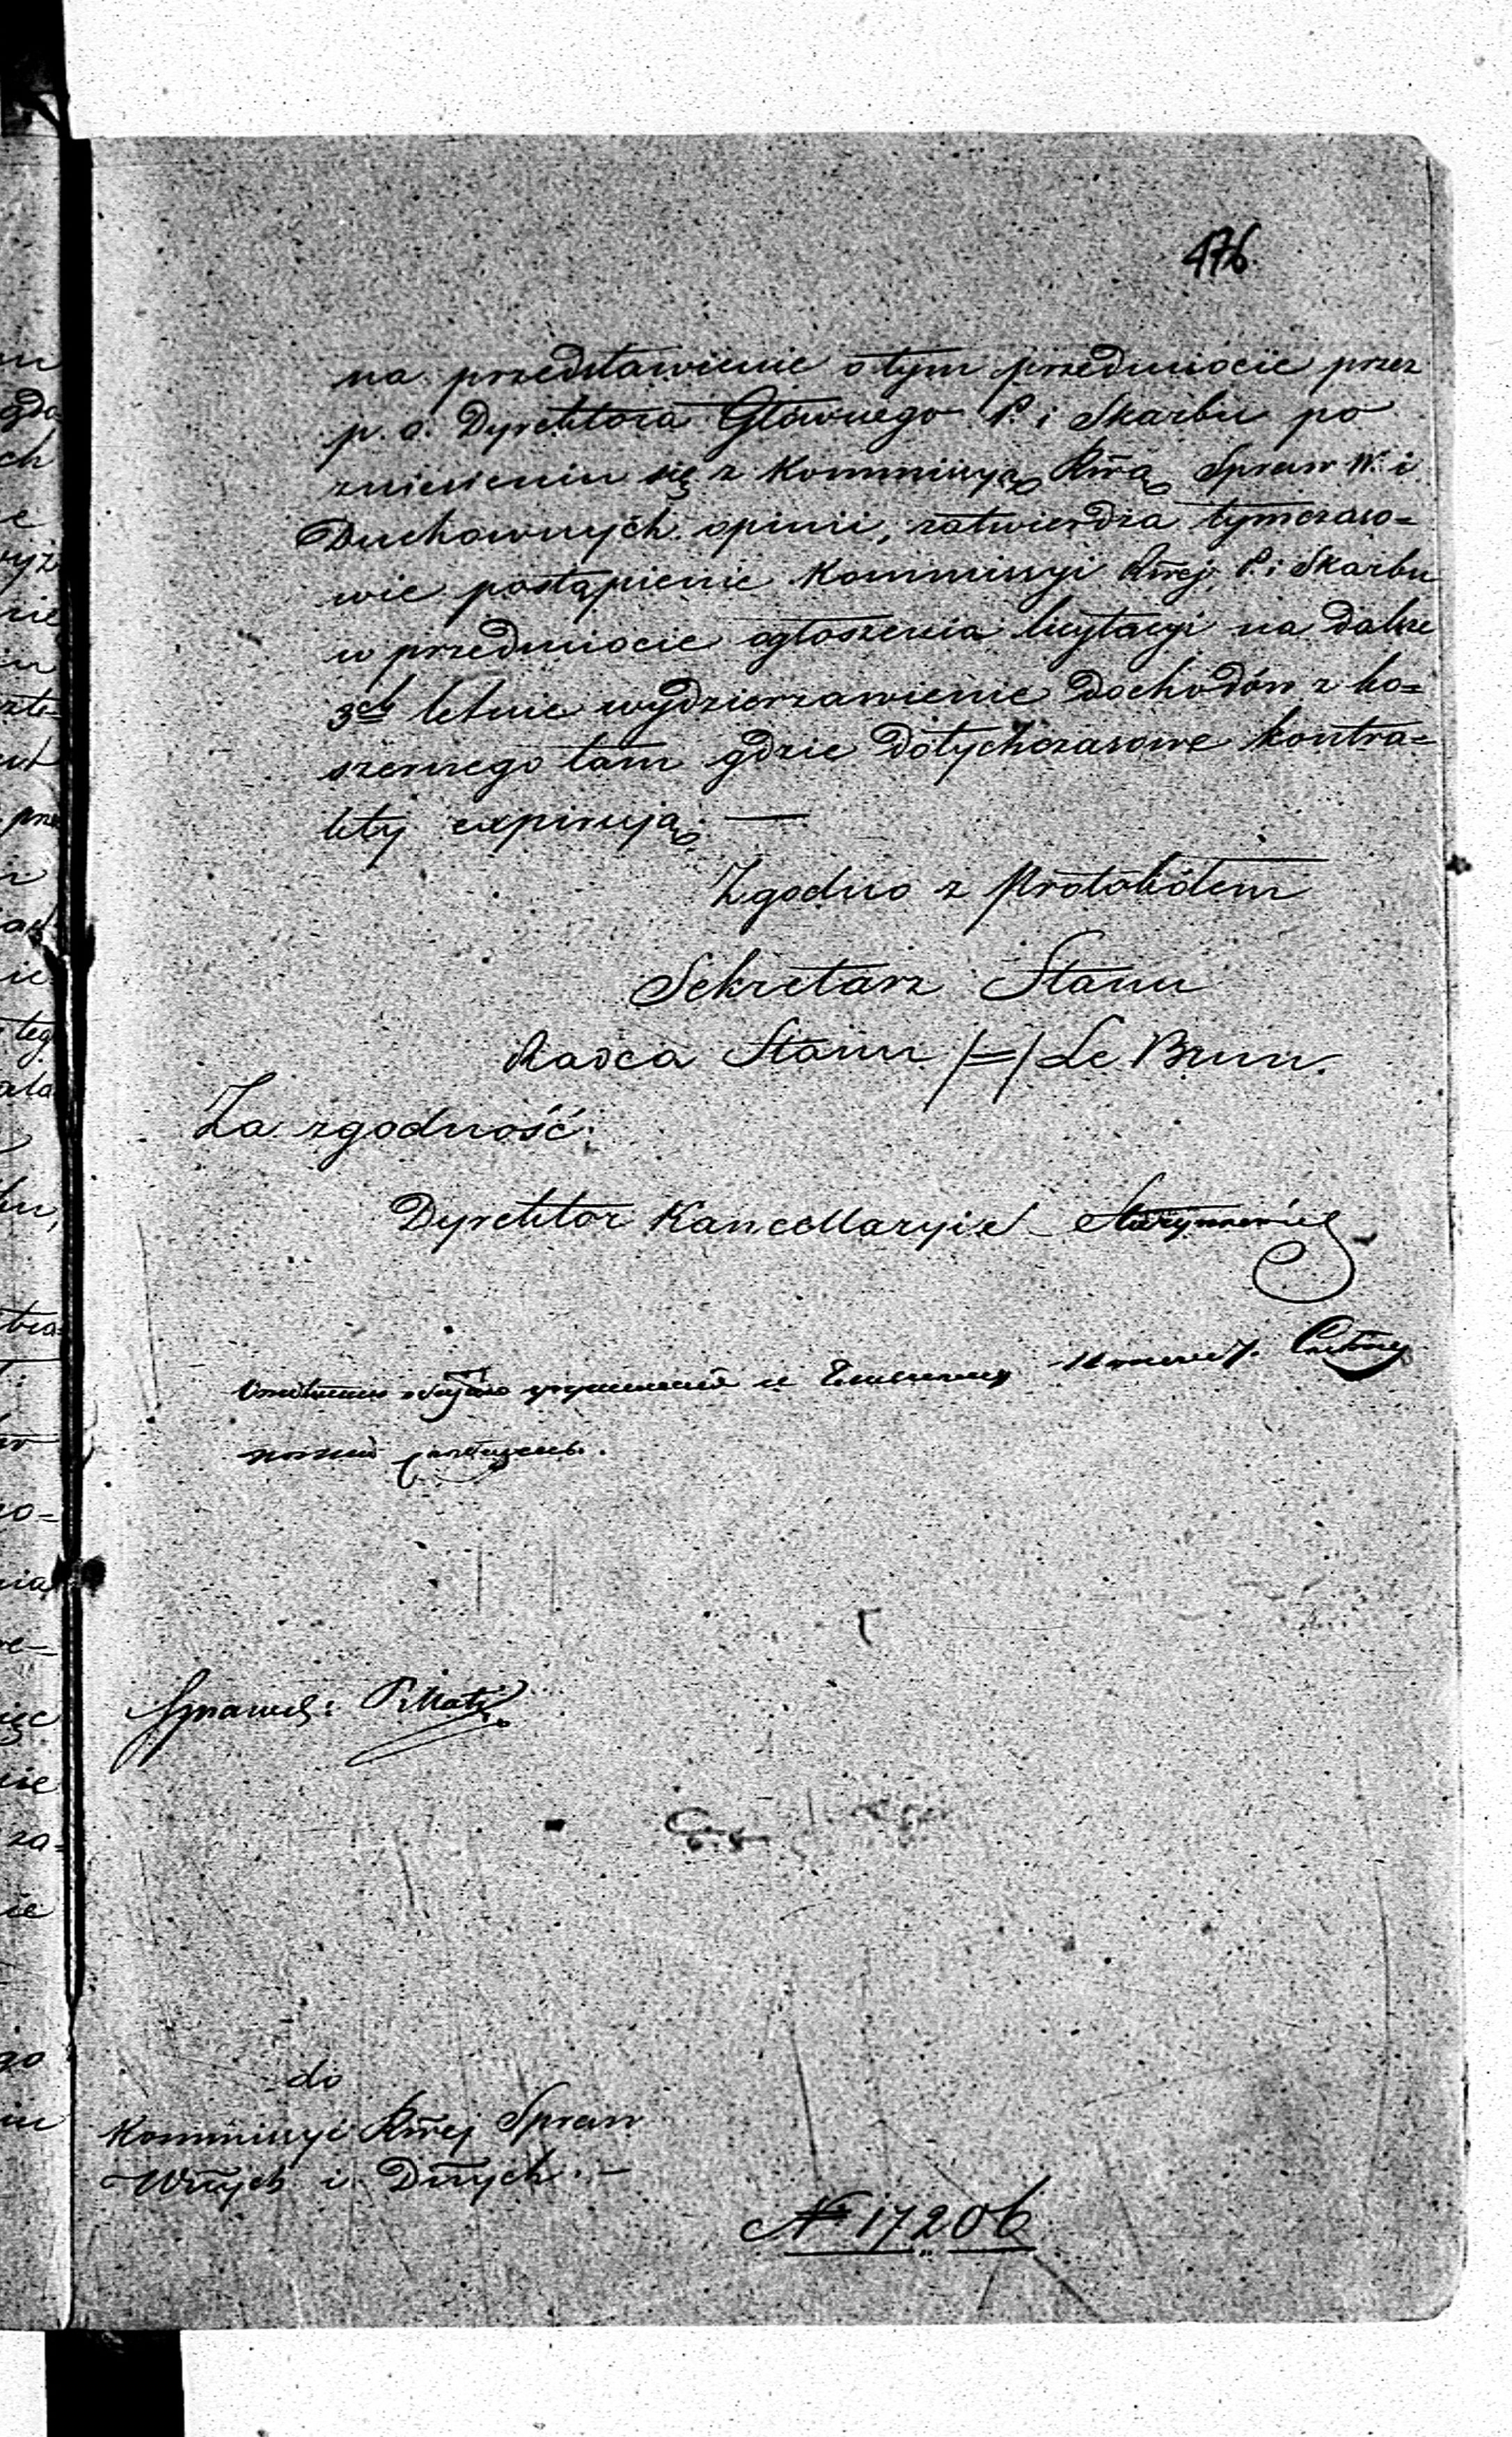 476.
na przedstawienie o tym przedmiocie przez
p. o. Dyrektora Głównego P. i Skarbu po
zniesieniu się z Kommissyą Rwą Spraw W. i
Duchownych opinii, zatwierdza tymczaso=
wie postąpienie Kommissyi Rwej P. i Skarbu
w przedmiocie ogłoszenia licytacyi na dalsze
3ch letnie wydzierzawienie dochodów z ko=
szernego tam gdzie dotychczasowe kontra=
kty expirują. —
Zgodno z Protokółem
Sekretarz Stanu
Radca Stanu /=/ Le Brun.
Za zgodność:
Dyrektor Kancellaryi
do
Kommissyi Rwej Spraw
Wnych i Dnych. —
№ 17206